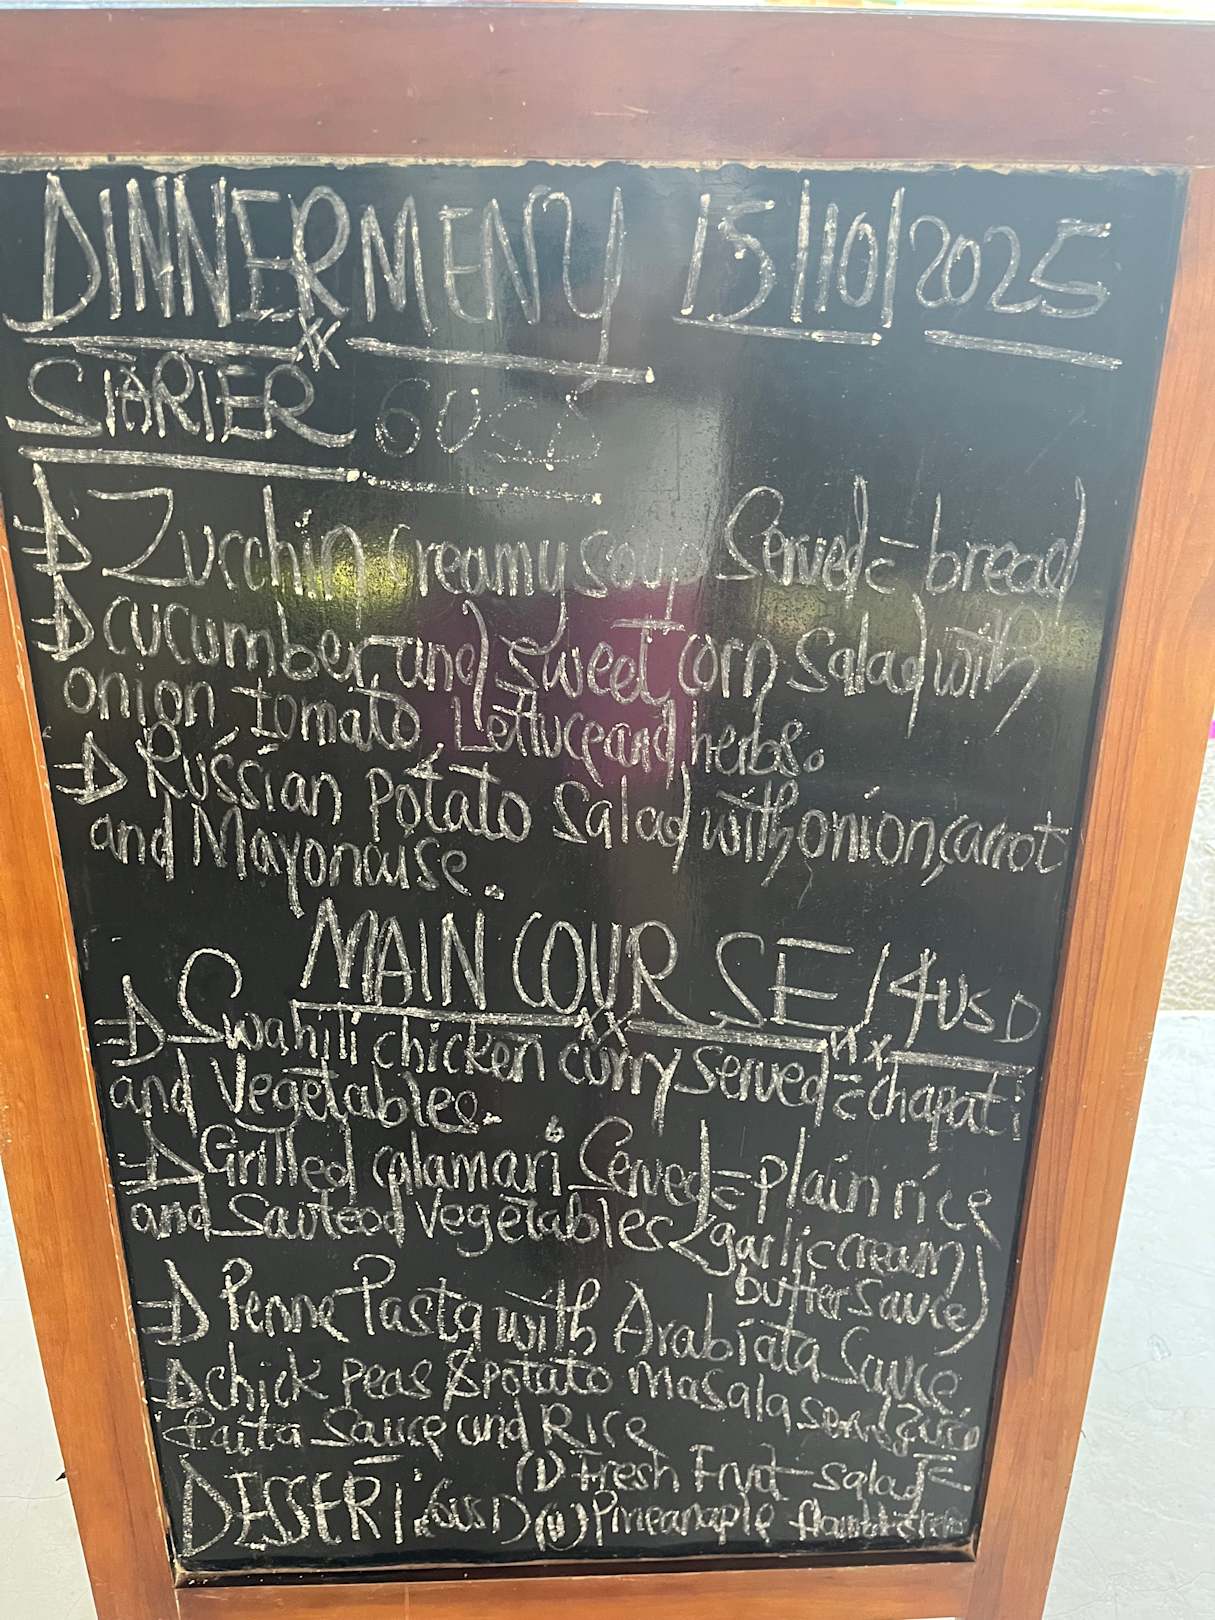 DINNER MENU 15/10/2025
STARTER 6USD
Zucchin creamy soup Served = bread
cucumber and sweet corn Salad with
onion tomato, Lettuce and herbs.
Russian potato Salad with onion, carrot
and Mayonaise.
MAIN COURSE / 14USD
Swahili chicken curry served = chapati
and Vegetables.
Grilled calamari Served = plain rice
and Sauteod Vegetables (garlic cream
butter Sauce)
Penne Pasta with Arabiata Sauce
chick peas & potato Masala served
Raita Sauce and Rice
(i) Fresh Fruit Salad
DESSERT 6USD (ii) Pineanaple